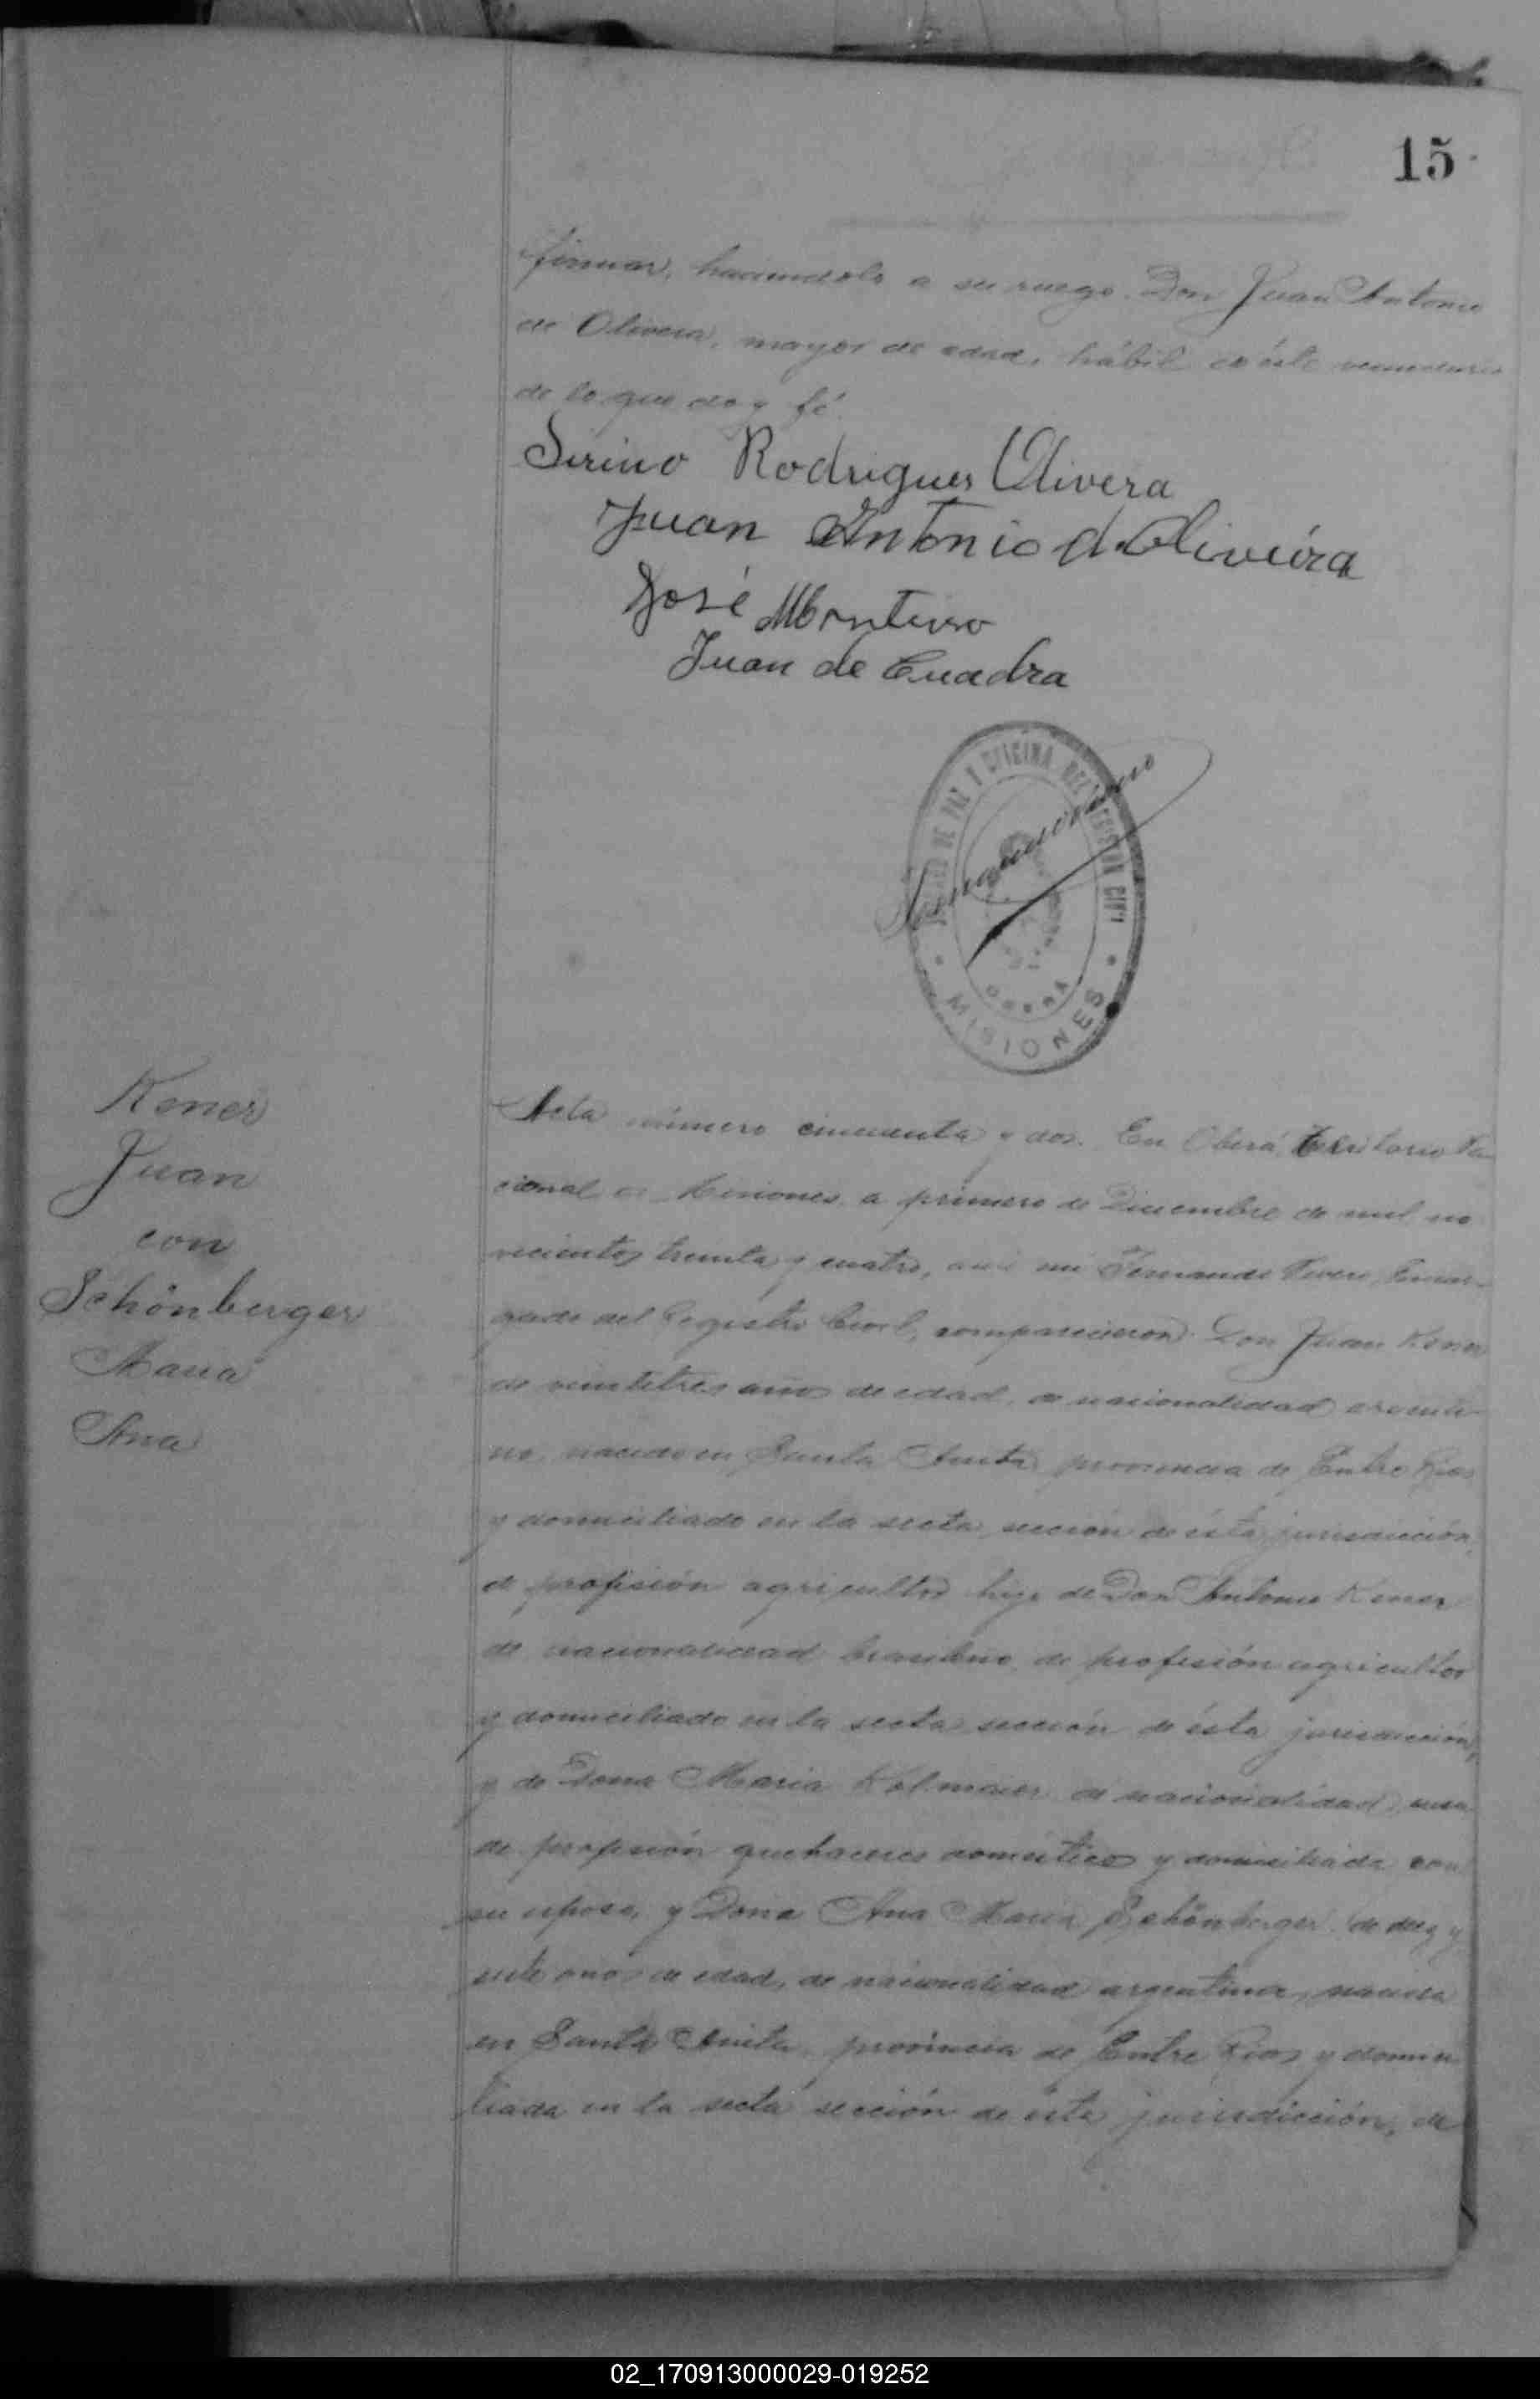 15
firmar, haciendolo a su ruego Don Juan Antonio
de Olivera, mayor de edad, hábil
de lo que doy fé.
Sirino Rodrigues Olivera
Juan Antonio d. Oliveira
José Monteiro
Juan de Cuadra
DE PAZ Y OFICINA DEL REGISTRO CIVIL
MISIONES
Kener
Juan
con
Schönberger
Maria
Ana
Acta número cincuenta y dos. En Oberá, Territorio Na-
cional de Misiones, a primero de Diciembre de mil no
vecientos treinta y cuatro, ante mi Fernando Encar-
gado del Registro Civil, comparecieron Don Juan Kener
de veintitres años de edad, de nacionalidad argenti-
no, nacido en Santa Anita provincia de Entre Rios
y domiciliado en la secta sección de ésta jurisdicción,
de profesión agricultor hijo de Don Antonio Kener
de nacionalidad brasileno, de profesión agricultor
y domiciliado en la secta sección de ésta jurisdicción,
y de Dona Maria de nacionalidad rusa
de profesión quehaceres domésticos y domiciliada con
su esposo, y Dona Ana Maria Schönberger de diez y
siete años de edad, de nacionalidad argentina, nacida
en Santa Anita, provincia de Entre Rios y domici
liada en la secta sección de ésta jurisdicción, de
02_170913000029-019252